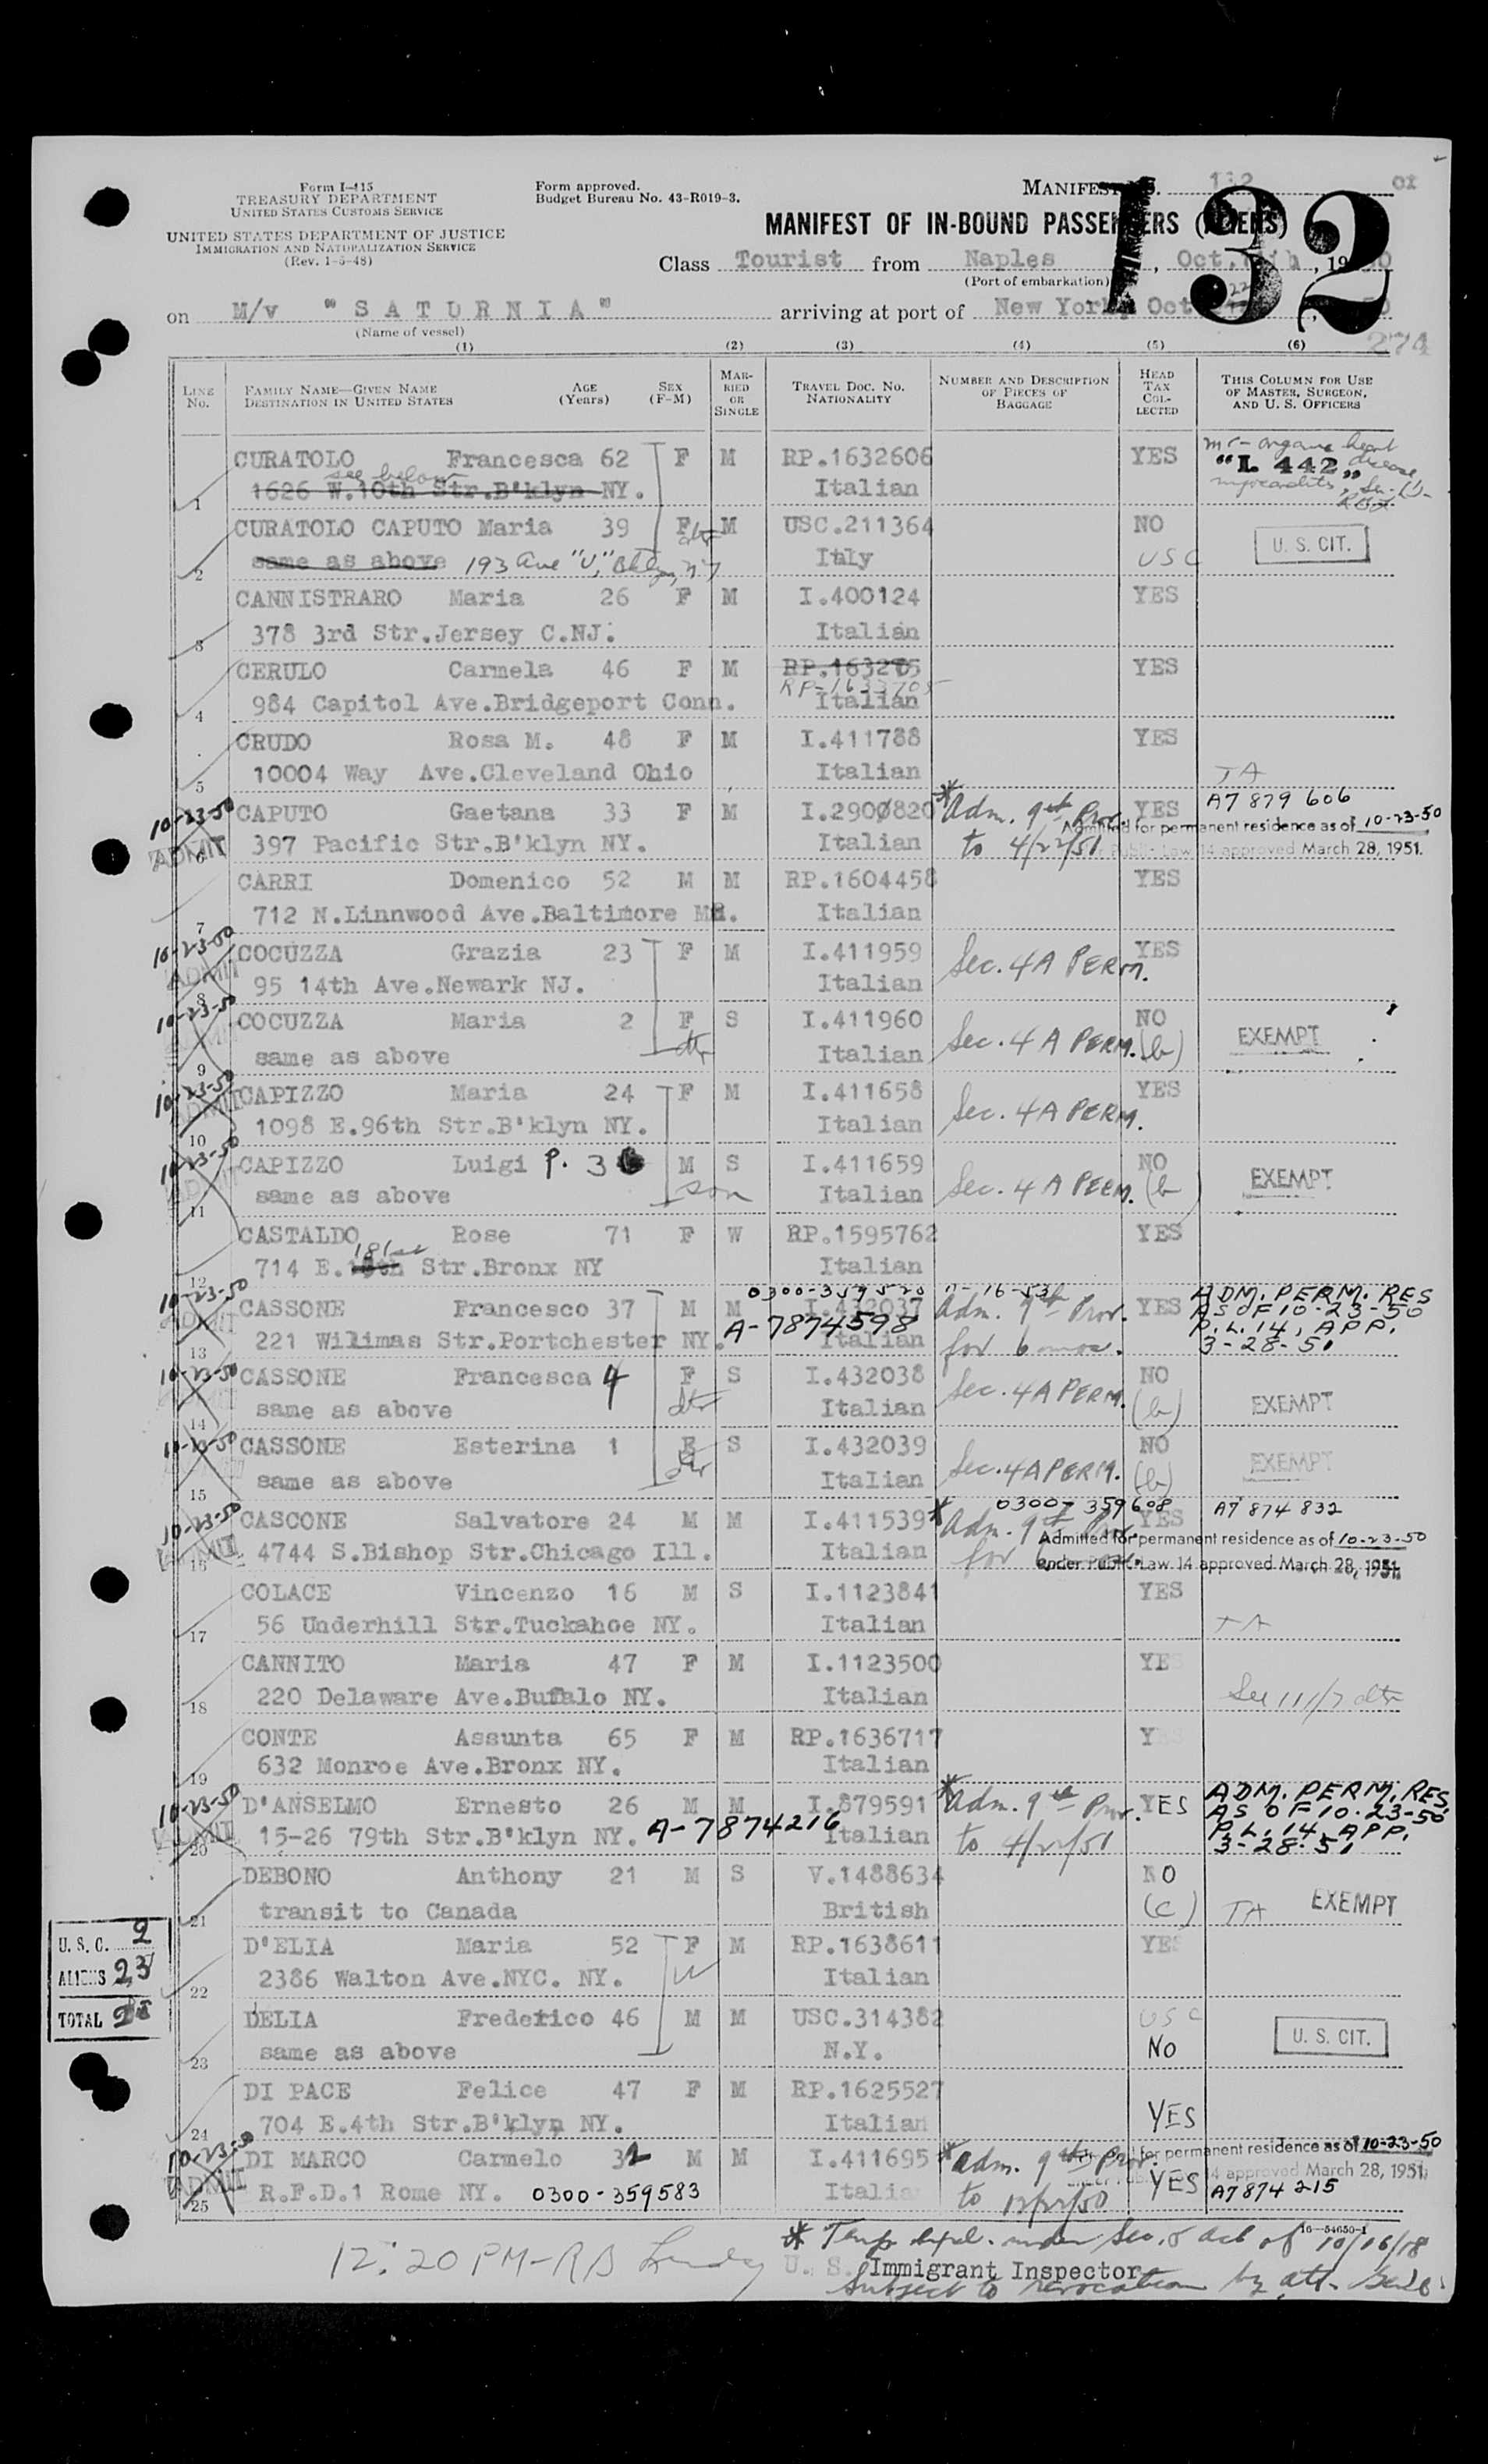 Form I-415
TREASURY DEPARTMENT
UNITED STATES CUSTOMS SERVICE
UNITED STATES DEPARTMENT OF JUSTICE
IMMIGRATION AND NATURALIZATION SERVICE
(Rev. 1-5-48)
Form approved.
Budget Bureau No. 43-R019-3.
MANIFEST 132 of
132
MANIFEST OF IN-BOUND PASSENGERS (ALIENS)
Class Tourist from Naples , Oct. , 19
(Port of embarkation)
on M/v "SATURNIA" arriving at port of New York, Oct 22
(Name of vessel)
274
(1) (2) (3) (4) (5) (6)
LINE NO. FAMILY NAME—GIVEN NAME DESTINATION IN UNITED STATES AGE (Years) SEX (F-M) MARRIED OR SINGLE TRAVEL DOC. NO. NATIONALITY NUMBER AND DESCRIPTION OF PIECES OF BAGGAGE HEAD TAX COLLECTED THIS COLUMN FOR USE OF MASTER, SURGEON, AND U. S. OFFICERS
CURATOLO Francesca 62 F M RP.1632606 YES organic heart disease
see below "I. 442"
1 1626 W.10th Str.B'klyn NY. Italian myocarditis
CURATOLO CAPUTO Maria 39 F dtr M USC.211364 NO U. S. CIT.
2 same as above 193 Ave "U", Bklyn, NY Itly USC
CANNISTRARO Maria 26 F M I.400124 YES
3 378 3rd Str.Jersey C.NJ. Italian
CERULO Carmela 46 F M RP.163275 YES
RP-1633705
4 984 Capitol Ave.Bridgeport Conn. Italian
CRUDO Rosa M. 48 F M I.411788 YES
5 10004 Way Ave.Cleveland Ohio Italian TA
10-23-50 CAPUTO Gaetana 33 F M I.2900820 * Adm. 9th Prov. YES A7 879 606
Admitted for permanent residence as of 10-23-50
ADMIT 6 397 Pacific Str.B'klyn NY. Italian to 4/22/51 Public Law 14 approved March 28, 1951.
CARRI Domenico 52 M M RP.1604458 YES
7 712 N.Linnwood Ave.Baltimore Md. Italian
10-23-50 COCUZZA Grazia 23 F M I.411959 Sec. 4A PERM. YES
ADMIT 8 95 14th Ave.Newark NJ. Italian
10-23-50 COCUZZA Maria 2 F dtr S I.411960 Sec. 4 A PERM. NO (b) EXEMPT
9 same as above Italian
10-23-50 CAPIZZO Maria 24 F M I.411658 Sec. 4A PERM. YES
ADMIT 10 1098 E.96th Str.B'klyn NY. Italian
10-23-50 CAPIZZO Luigi P. 3 M son S I.411659 Sec. 4 A PERM. NO (b EXEMPT
11 same as above Italian
CASTALDO Rose 71 F W RP.1595762 YES
12 714 E.181st Str.Bronx NY Italian
0300-359520
10-23-50 CASSONE Francesco 37 M M I.432037 Adm. 9th Prov. YES ADM. PERM. RES
ADMIT AS OF 10-23-50
13 221 Wilimas Str.Portchester NY. A-7874598 Italian for 6 mos. P.L. 14, APP.
3-28-51
10-23-50 CASSONE Francesca 4 F dtr S I.432038 Sec. 4A PERM. NO (b) EXEMPT
14 same as above Italian
10-23-50 CASSONE Esterina 1 F dtr S I.432039 Sec. 4A PERM. NO (b) EXEMPT
15 same as above Italian
0300-359608
10-23-50 CASCONE Salvatore 24 M M I.411539 * Adm. 9th YES A7 874 832
Admitted for permanent residence as of 10-23-50
ADMIT 16 4744 S.Bishop Str.Chicago Ill. Italian for under Public Law. 14 approved March 28, 1951.
COLACE Vincenzo 16 M S I.1123841 YES
17 56 Underhill Str.Tuckahoe NY. Italian TA
CANNITO Maria 47 F M I.1123500 YES
18 220 Delaware Ave.Buffalo NY. Italian See 111/7 dtr
CONTE Assunta 65 F M RP.1636717 Y
19 632 Monroe Ave.Bronx NY. Italian
10-23-50 D'ANSELMO Ernesto 26 M M I.879591 * Adm. 9th Prov. YES ADM. PERM. RES.
AS OF 10-23-50
ADMIT 20 15-26 79th Str.B'klyn NY. A-7874216 Italian to 4/22/51 P.L. 14, APP.
3-28-51
DEBONO Anthony 21 M S V.1488634 NO
21 transit to Canada British (c) TA EXEMPT
D'ELIA Maria 52 F W M RP.1638611 YES
22 2386 Walton Ave.NYC. NY. Italian
DELIA Frederico 46 M M USC.314382 USC U. S. CIT.
23 same as above N.Y. No
DI PACE Felice 47 F M RP.1625527
24 704 E.4th Str.B'klyn NY. Italian YES
10-23-50 DI MARCO Carmelo 32 M M I.411695 * Adm. 9th Prov. for permanent residence as of 10-23-50
14 approved March 28, 1951.
ADMIT 25 R.F.D.1 Rome NY. 0300-359583 Italia to 12/22/50 YES A7874 215
U. S. C. 2
ALIENS 23
TOTAL 25
16—54650-1
* Temp. under Sec. Act of 10/16/18
12:20 PM-RB U. S. Immigrant Inspector
Subject to revocation by att.